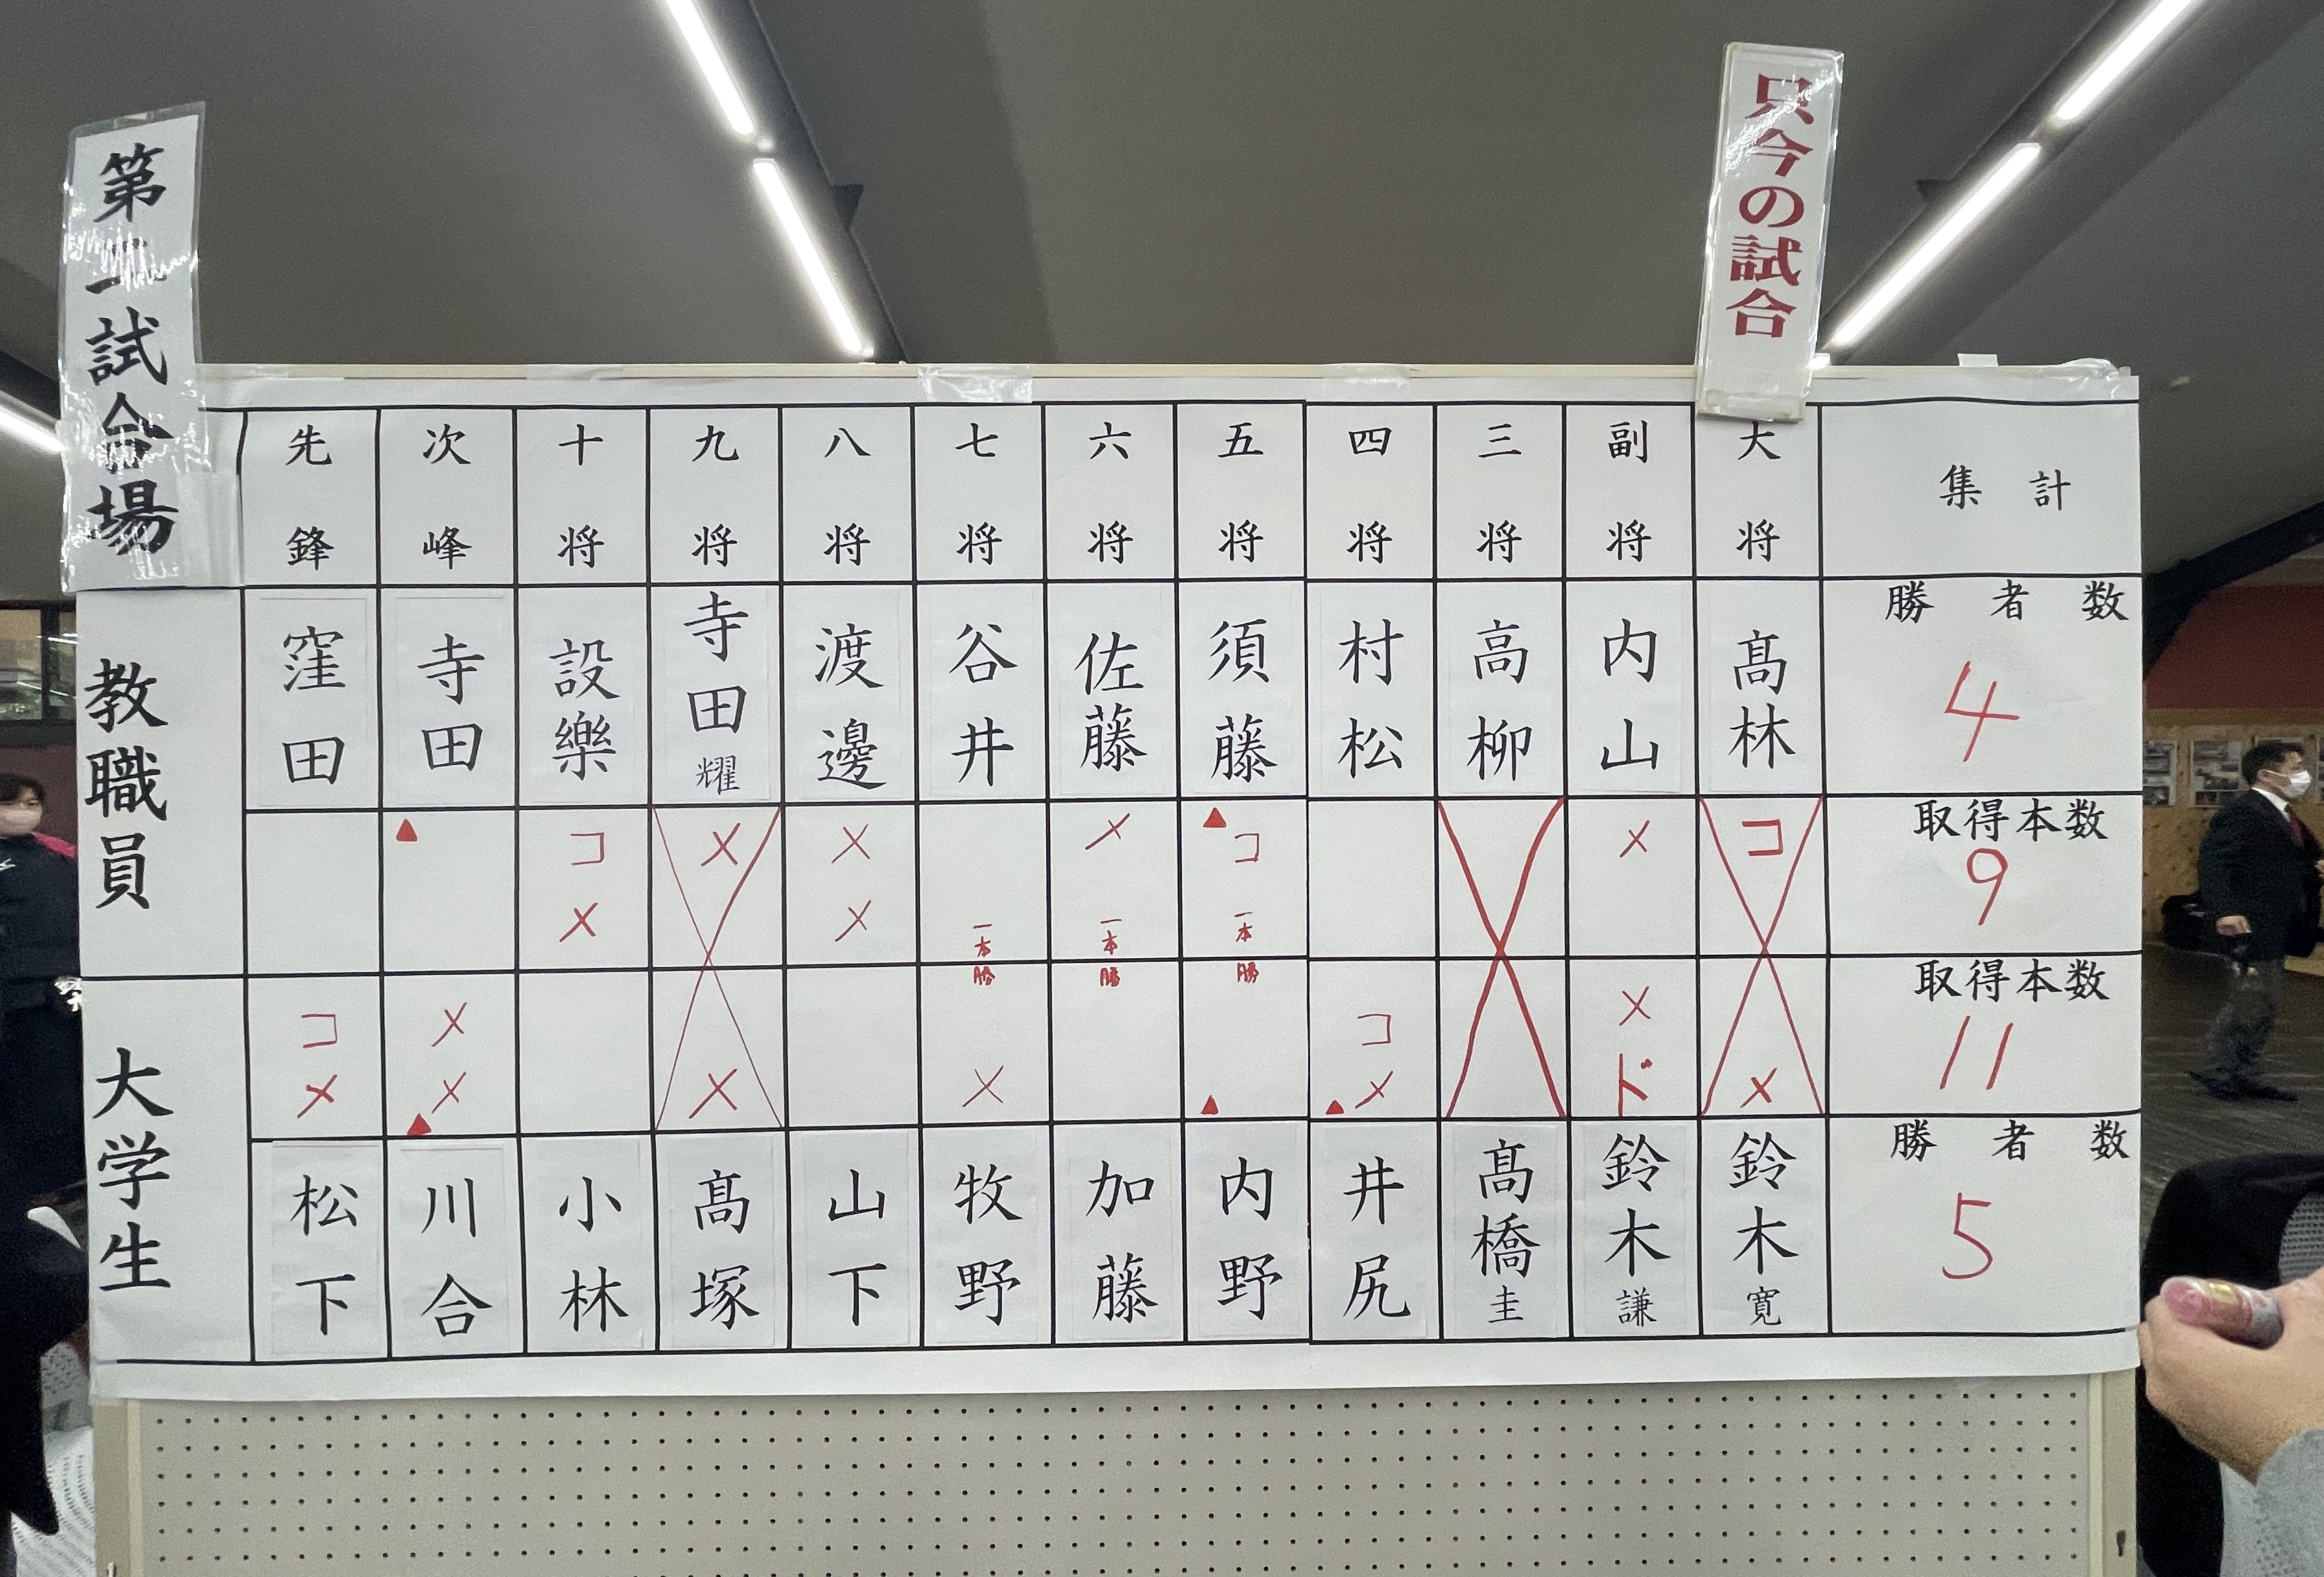 第二試合場
只今の試合
先鋒 次峰 十将 九将 八将 七将 六将 五将 四将 三将 副将 大将 集計
教職員 窪田 寺田 設樂 寺田耀 渡邊 谷井 佐藤 須藤 村松 高柳 内山 髙林 勝者数 4
▲ コメ メ メメ 一本勝 メ一本勝 ▲コ一本勝 メ コ 取得本数 9
大学生 コメ メメ▲ メ メ ▲ コメ▲ メド メ 取得本数 11
松下 川合 小林 髙塚 山下 牧野 加藤 内野 井尻 髙橋圭 鈴木謙 鈴木寛 勝者数 5